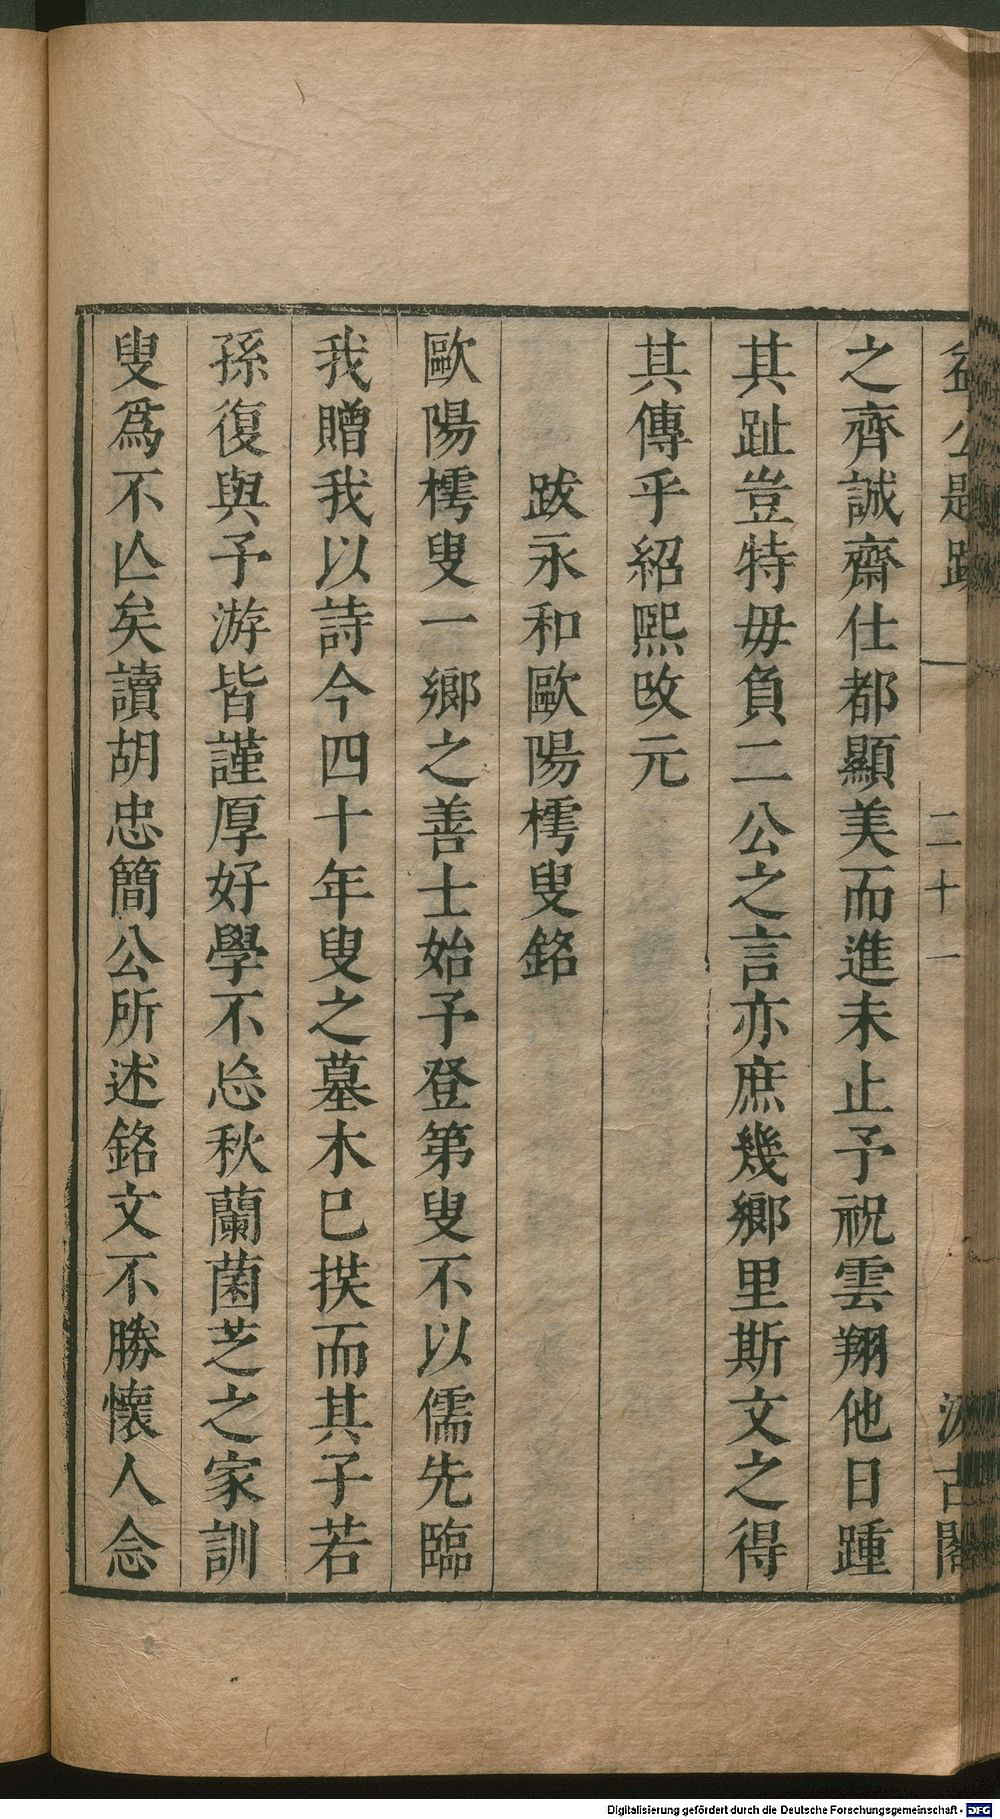 益公題跋 一 二十一 汲古閣
之齊誠齋仕都顯美而進未止予祝雲翔他日踵
其趾豈特毋負二公之言亦庶幾鄉里斯文之得
其傳乎紹熙改元
跋永和歐陽樗叟銘
歐陽樗叟一鄉之善士始予登第叟不以儒先臨
我贈我以詩今四十年叟之墓木巳拱而其子若
孫復與予游皆謹厚好學不忘秋蘭菌芝之家訓
叟爲不亾矣讀胡忠簡公所述銘文不勝懷人念
Digitalisierung gefördert durch die Deutsche Forschungsgemeinschaft - DFG